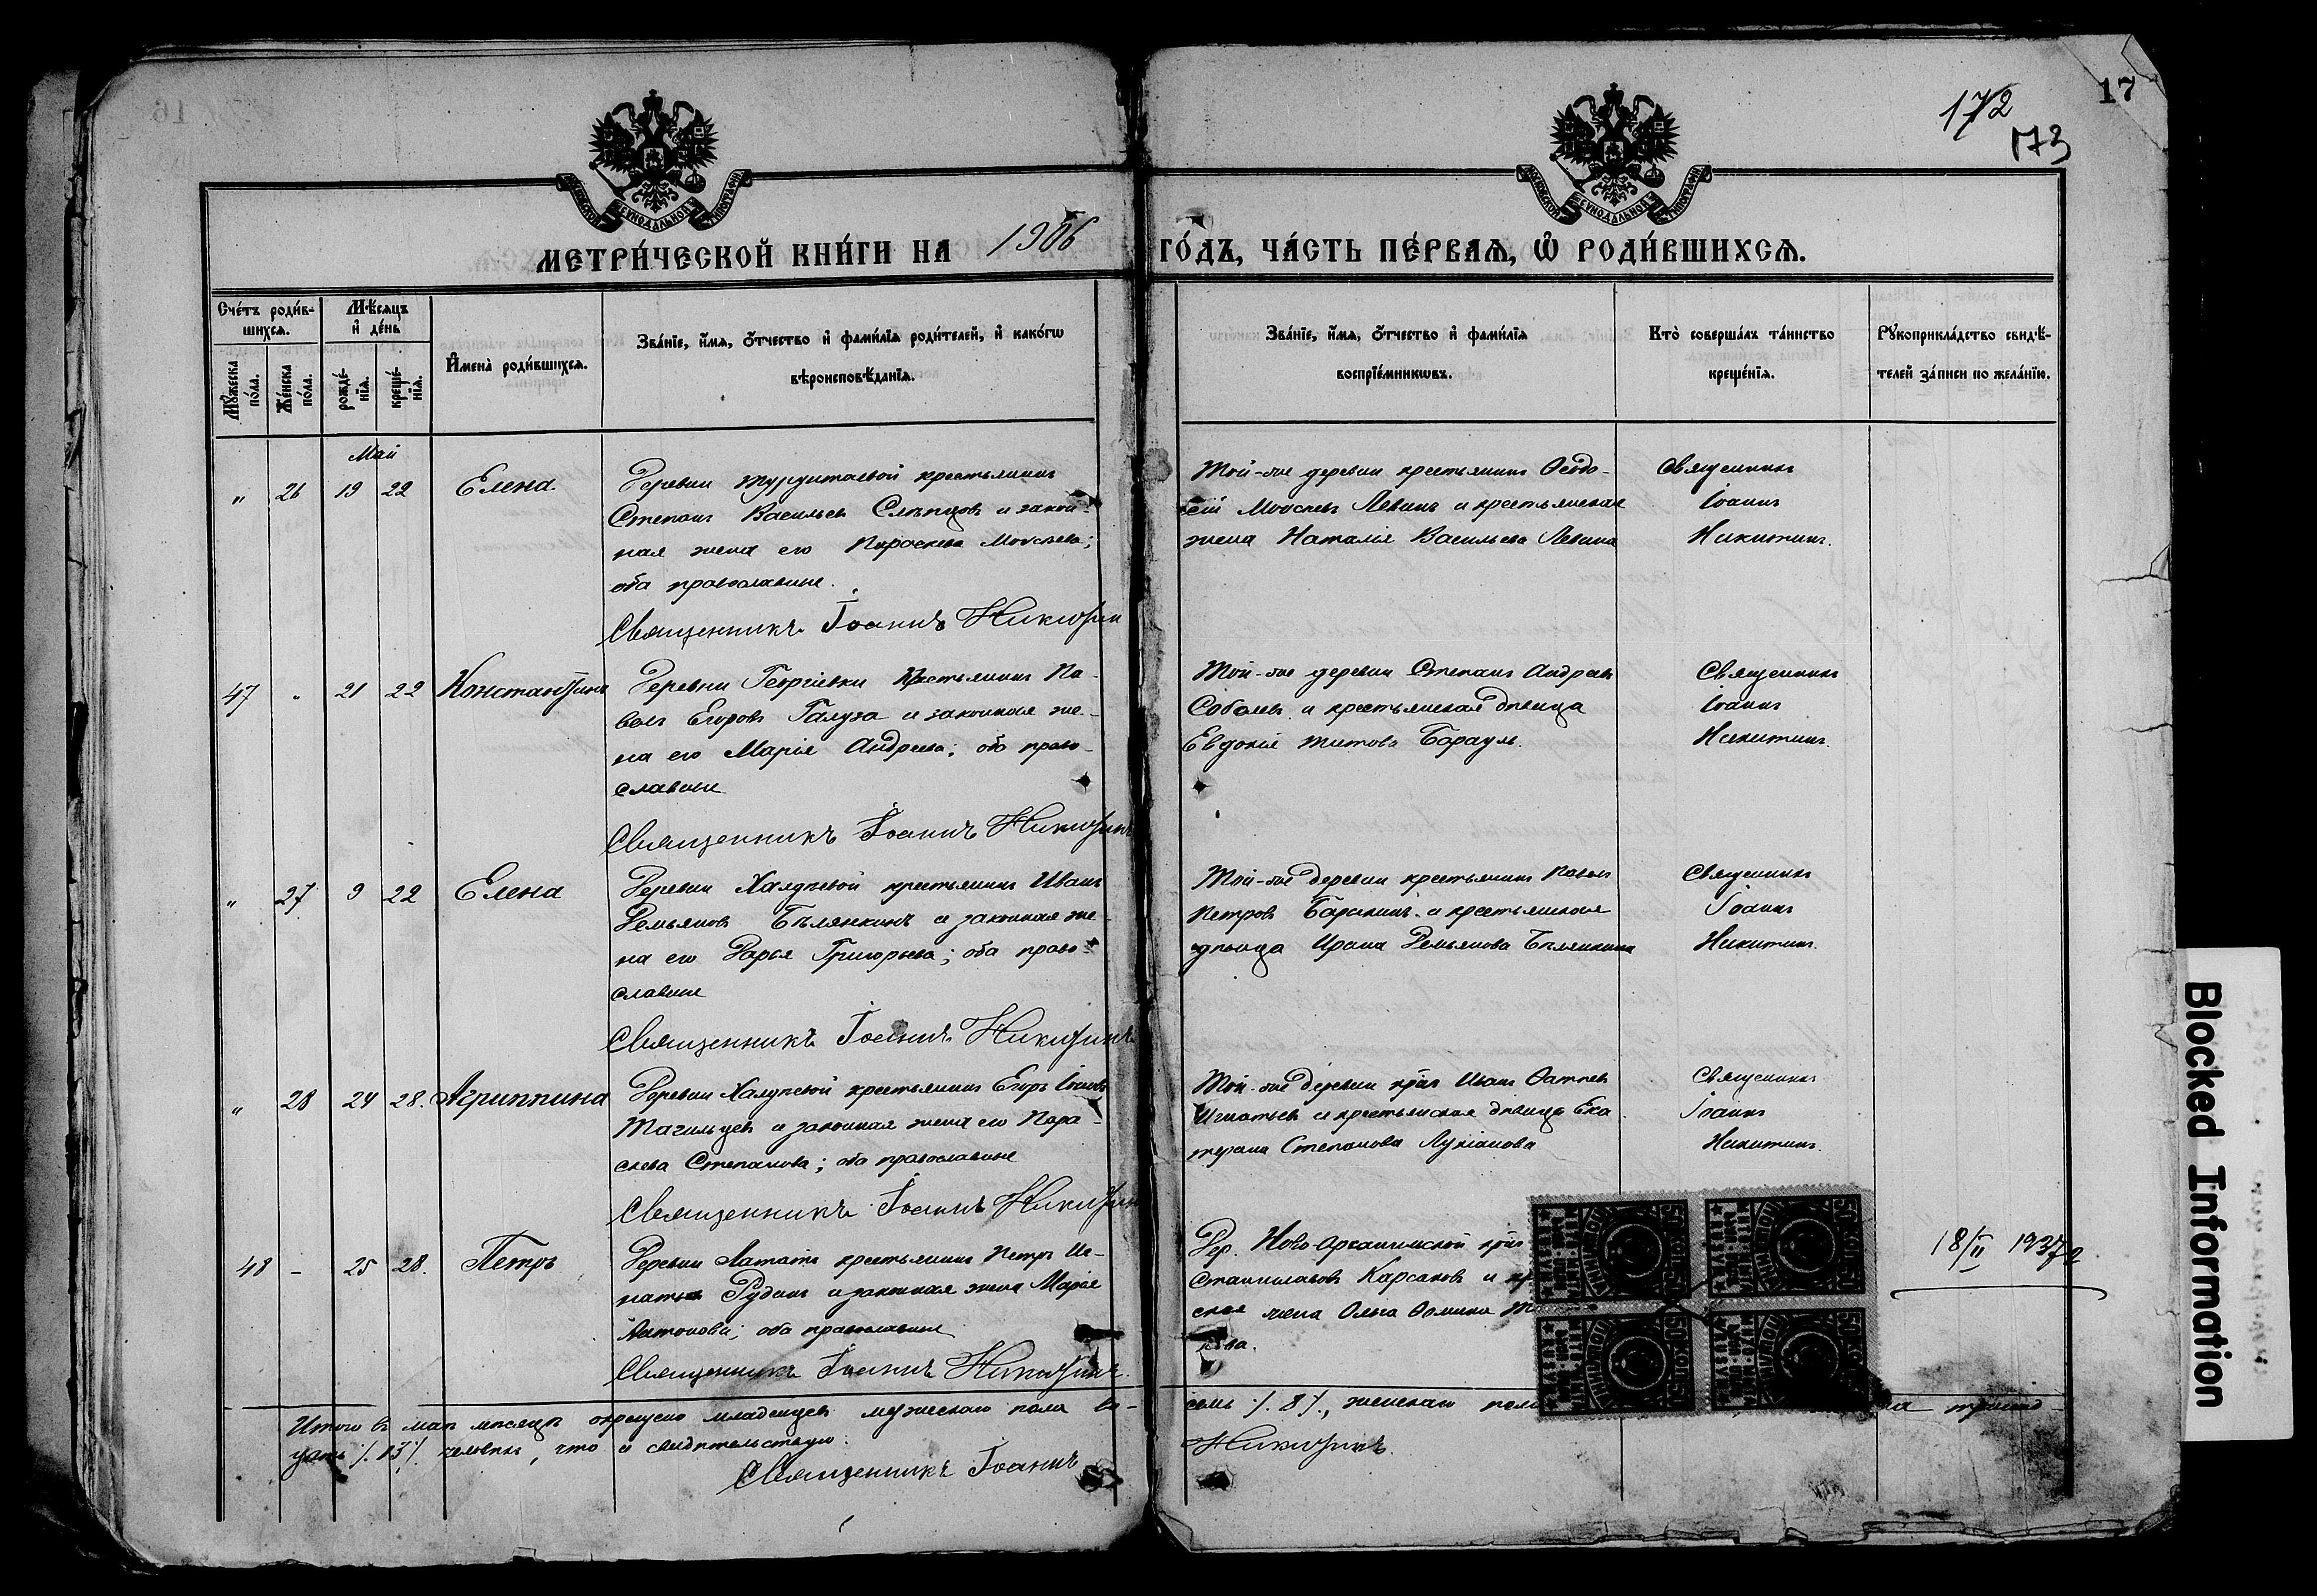 17
172
173
МЕТРИ́ЧЕСКОЙ КНИ́ГИ НА 1906 ГО́ДЪ, ЧА́СТЬ ПЕ́РВАѦ, Ѽ РОДИ́ВШИХСѦ.
Сче́тъ роди́в-
шихсѧ.
Мѣ́сѧцъ
и҆ де́нь
Мꙋ́жеска по́ла.
Же́нска по́ла.
рожде́-
нїѧ.
креще́-
нїѧ.
И҆мена̀ роди́вшихсѧ.
Зва́нїе, и҆́мѧ, ѻ҆́тчество и҆ фами́лїѧ роди́телей, и҆ како́гѡ
вѣроисповѣ́данїѧ.
Зва́нїе, и҆́мѧ, ѻ҆́тчество и҆ фами́лїѧ
воспрїе́мникѡвъ.
Кто̀ соверша́лъ та́инство
креще́нїѧ.
Рꙋкоприкла́дство свидѣ́-
телей за́писи по жела́нїю.
Май
" 26 19 22 Елена.
Деревни крестьянинъ
Степанъ Васильевъ Слѣпцовъ и закон-
ная жена его Параскева Моисеева;
оба православные.
Священникъ Іоаннъ Никитин
Той-же деревни крестьянинъ Ѳеодо-
сій Моисеевъ Левинъ и крестьянская
жена Наталія Васильева Левина
Священникъ
Іоаннъ
Никитинъ.
47 " 21 22 Константинъ
Деревни Георгіевки крестьянинъ Па-
велъ Егоровъ Галуза и законная же-
на его Марія Андреева; оба право-
славные
Священникъ Іоаннъ Никитинъ
Той-же деревни Степанъ Андреевъ
Соболевъ и крестьянская дѣвица
Евдокія Титова Барауль.
Священникъ
Іоаннъ
Никитинъ.
" 27 9 22 Елена
Деревни Халдѣевой крестьянинъ Иванъ
Демьяновъ Бѣлянкинъ и законная же-
на его Дарья Григорьева; оба право-
славные
Священникъ Іоаннъ Никитинъ
Той-же деревни крестьянинъ Павелъ
Петровъ и крестьянская
дѣвица Ирина Демьянова Бѣлянкина
Священникъ
Іоаннъ
Никитинъ.
" 28 24 28. Агриппина
Деревни крестьянинъ Егоръ Іоановъ
Тагильцевъ и законная жена его Пара-
скева Степанова; оба православные
Священникъ Іоаннъ Никитин
Той-же деревни Иванъ
Игнатьевъ и крестьянская дѣвица Ека-
терина Степанова Лукіанова
Священникъ
Іоаннъ
Никитинъ.
48 – 25 28. Петръ
Деревни Лататъ крестьянинъ Петръ Иг-
натьевъ Рудинъ и законная жена Марія
Антонова; оба православные
Священникъ Іоаннъ Никитинъ.
Дер. Ново-
Станиславовъ Карсаковъ и
ская жена Ольга Ѳомина
ова.
18/II 1937
Итого въ маѣ мѣсяцѣ окрещено младенцевъ мужескаго пола во-
семь /. 8 /., женскаго пола
цать /. 13 /. человѣкъ, что и свидѣтельствую.
Священникъ Іоаннъ Никитинъ.
50 КОП. 50
50 КОП. 50
50 КОП. 50
50 КОП. 50
Blocked Information